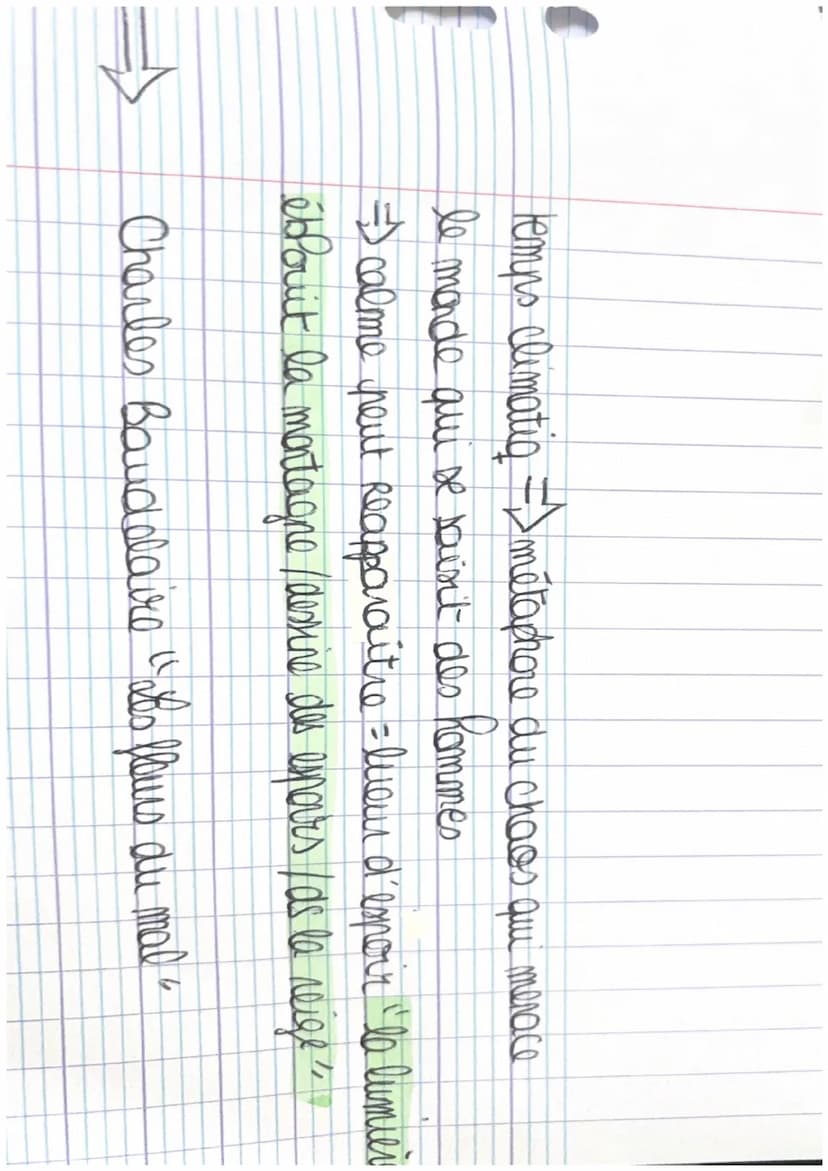 temps climatiq => métaphore du chaos qui menace
le monde qui se saisit des hommes
=> calme peut réapparaître = lueur d'espoir "la lumièr
éblouit la montagne / dessine des espoirs / ds la neige"
=> Charles Baudelaire "Les fleurs du mal"